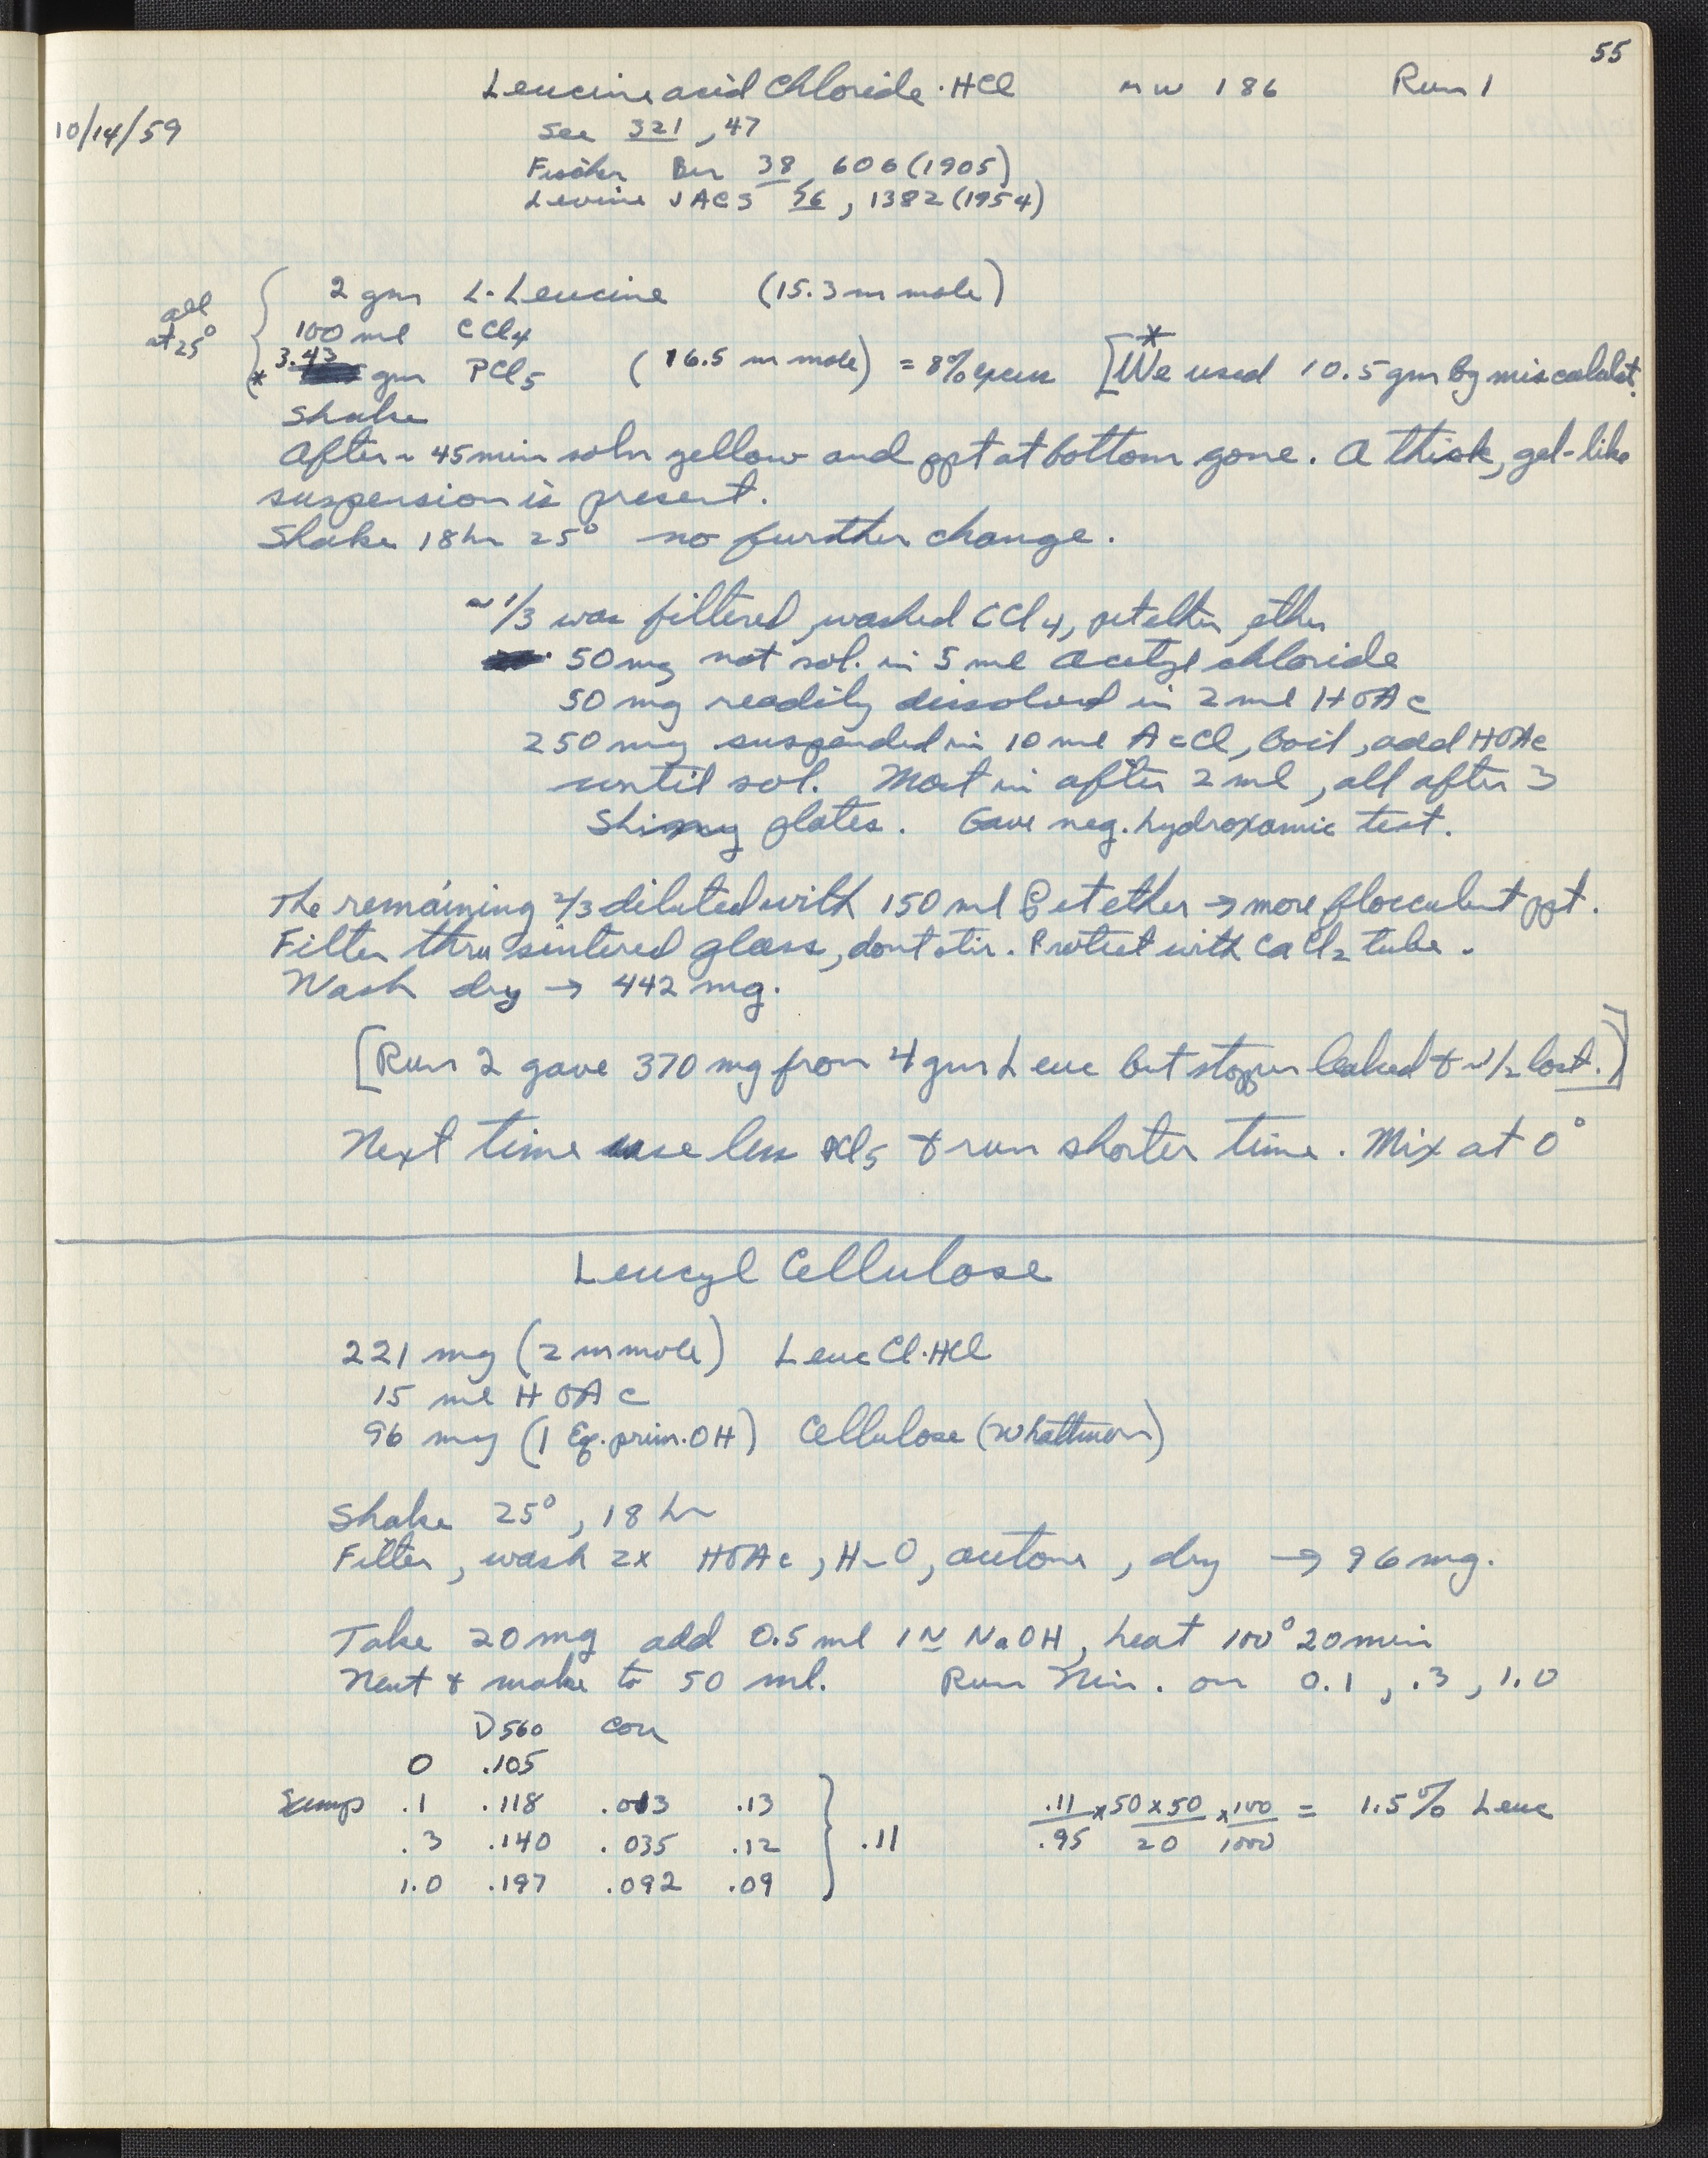 55
Leucine acid Chloride·HCl MW 186 Run 1
10/14/59
See 321, 47
Fischer Ber 38, 606 (1905)
Levine JACS 76, 1382 (1954)
all at 25°
2 gm L-Leucine (15.3 m mole)
100 ml CCl4
* 3.43 gm PCl5 (16.5 m mole) = 8% excess [* We used 10.5 gm by miscalculat.
Shake
After ~ 45 min soln yellow and ppt at bottom gone. A thick, gel-like
suspension is present.
Shake 18 hr 25° no further change.
~ 1/3 was filtered, washed CCl4, pet ether, ether
50 mg not sol. in 5 ml acetyl chloride
50 mg readily dissolved in 2 ml HOAc
250 mg suspended in 10 ml AcCl, boil, add HOAc
until sol. Most in after 2 ml, all after 3
Shiny plates. Gave neg. hydroxamic test.
The remaining 2/3 diluted with 150 ml Pet ether → more flocculent ppt.
Filter thru sintered glass, dont stir. Protect with CaCl2 tube.
Wash dry → 442 mg.
[Run 2 gave 370 mg from 4 gm Leuc but stopper leaked & ~1/2 lost.]
Next time use less PCl5 & run shorter time. Mix at 0°
Leucyl Cellulose
221 mg (2 m mole) Leuc Cl·HCl
15 ml HOAc
96 mg (1 Eq. prim. OH) Cellulose (Whattman)
Shake 25°, 18 hr
Filter, wash 2x HOAc, H2O, acetone, dry → 96 mg.
Take 20 mg add 0.5 ml 1N NaOH, heat 100° 20 min
Neut & make to 50 ml. Run Nin. on 0.1, .3, 1.0
D560 corr
0 .105
.1 .118 .013 .13
.3 .140 .035 .12 } .11
1.0 .197 .092 .09
.11/.95 x 50 x 50/20 x 100/1000 = 1.5% Leuc